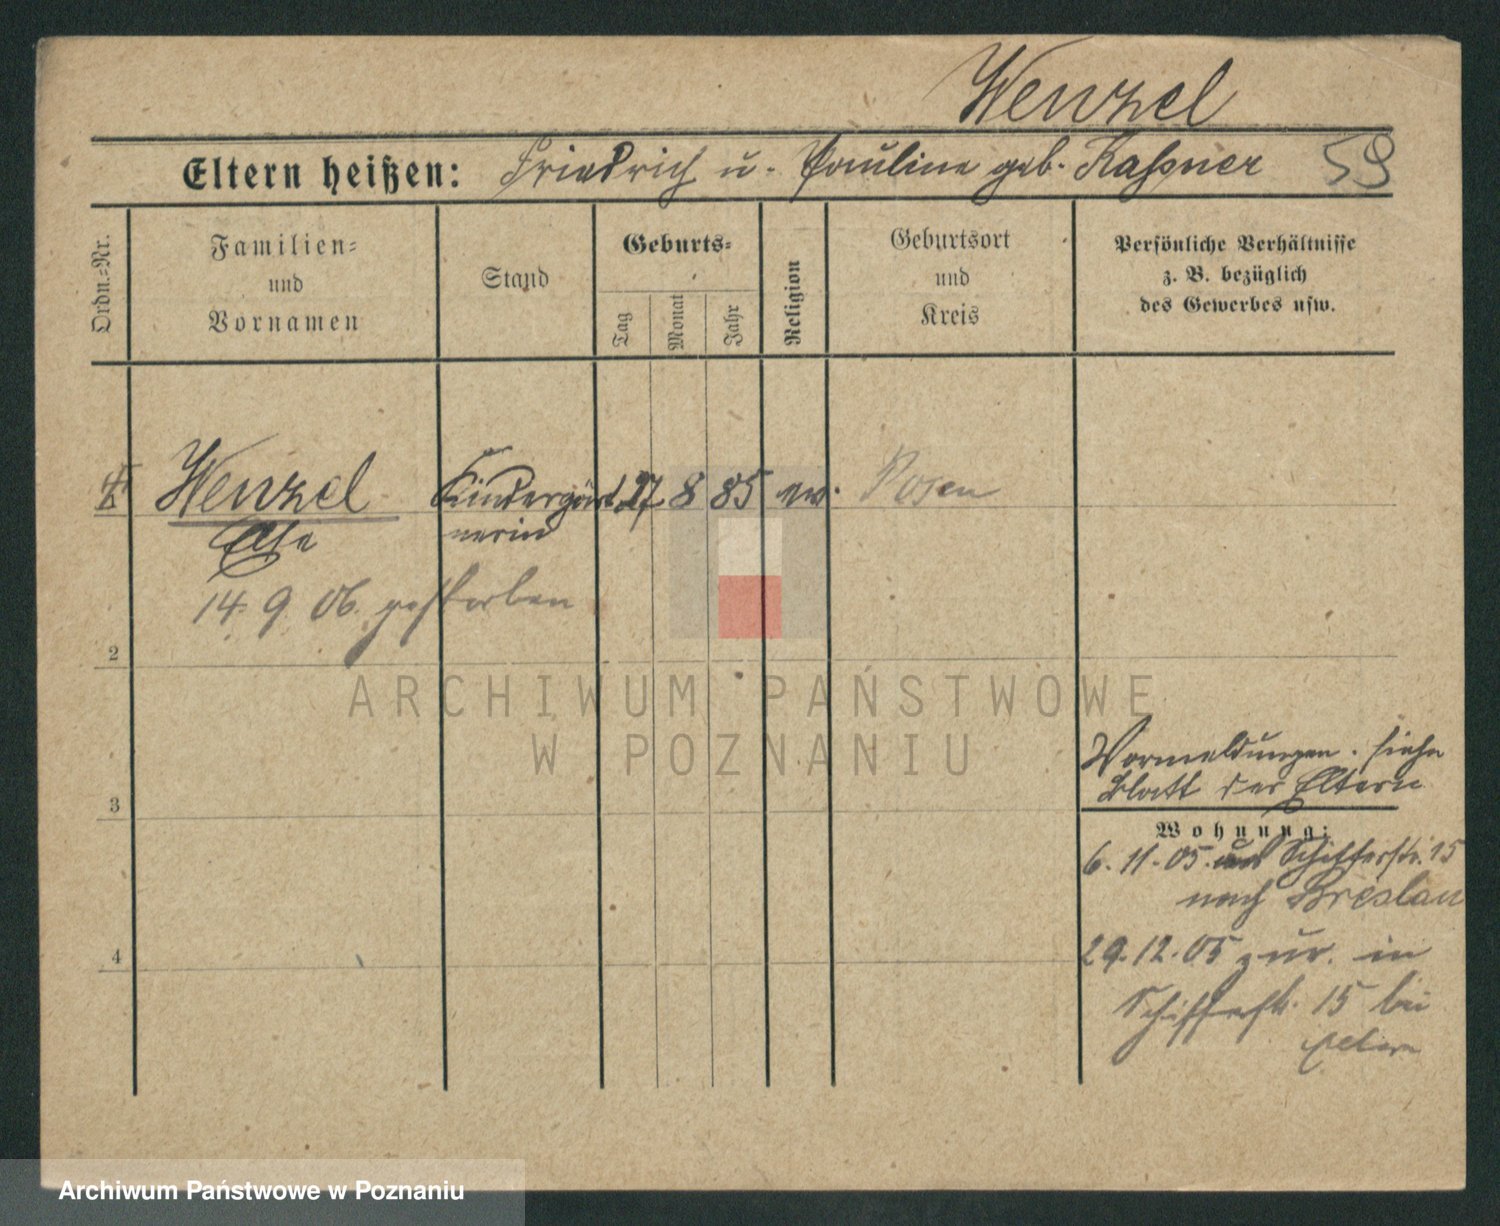 Wenzel
Eltern heißen: Friedrich u. Pauline geb. Kaßner 59
Ordn.=Nr.
Familien=
und
Vornamen
Stand
Geburts=
Tag
Monat
Jahr
Religion
Geburtsort
und
Kreis
Persönliche Verhältnisse
z. B. bezüglich
des Gewerbes usw.
Wenzel Kindergärt 27 8 85 ev. Posen
Else nerin
14. 9. 06. gestorben
2
ARCHIWUM PAŃSTWOWE
W POZNANIU
Vormeldungen. siehe
Blatt der Eltern
3
Wohnung:
6. 11. 05. Schifferstr. 15
nach Breslau
29. 12. 05 zur. in
4
Schifferstr. 15 bei
Eltern
Archiwum Państwowe w Poznaniu